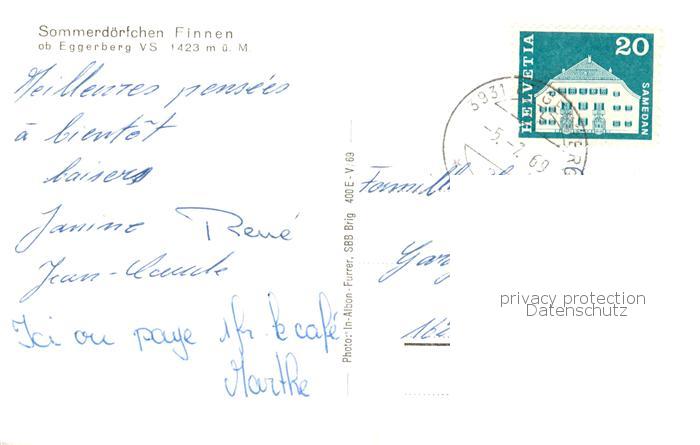 Sommerdörfchen Finnen
ob Eggerberg VS 1423 m ü. M.
Meilleures pensées
à bientôt
baisers
Janine René
Jean-Claude
Ici on paye 1fr le café
Marthe
Photo: In-Albon-Furrer, SBB Brig 400 E - V/69
HELVETIA
20
SAMEDAN
3931
-5.-7.69
Famill
privacy protection
Datenschutz